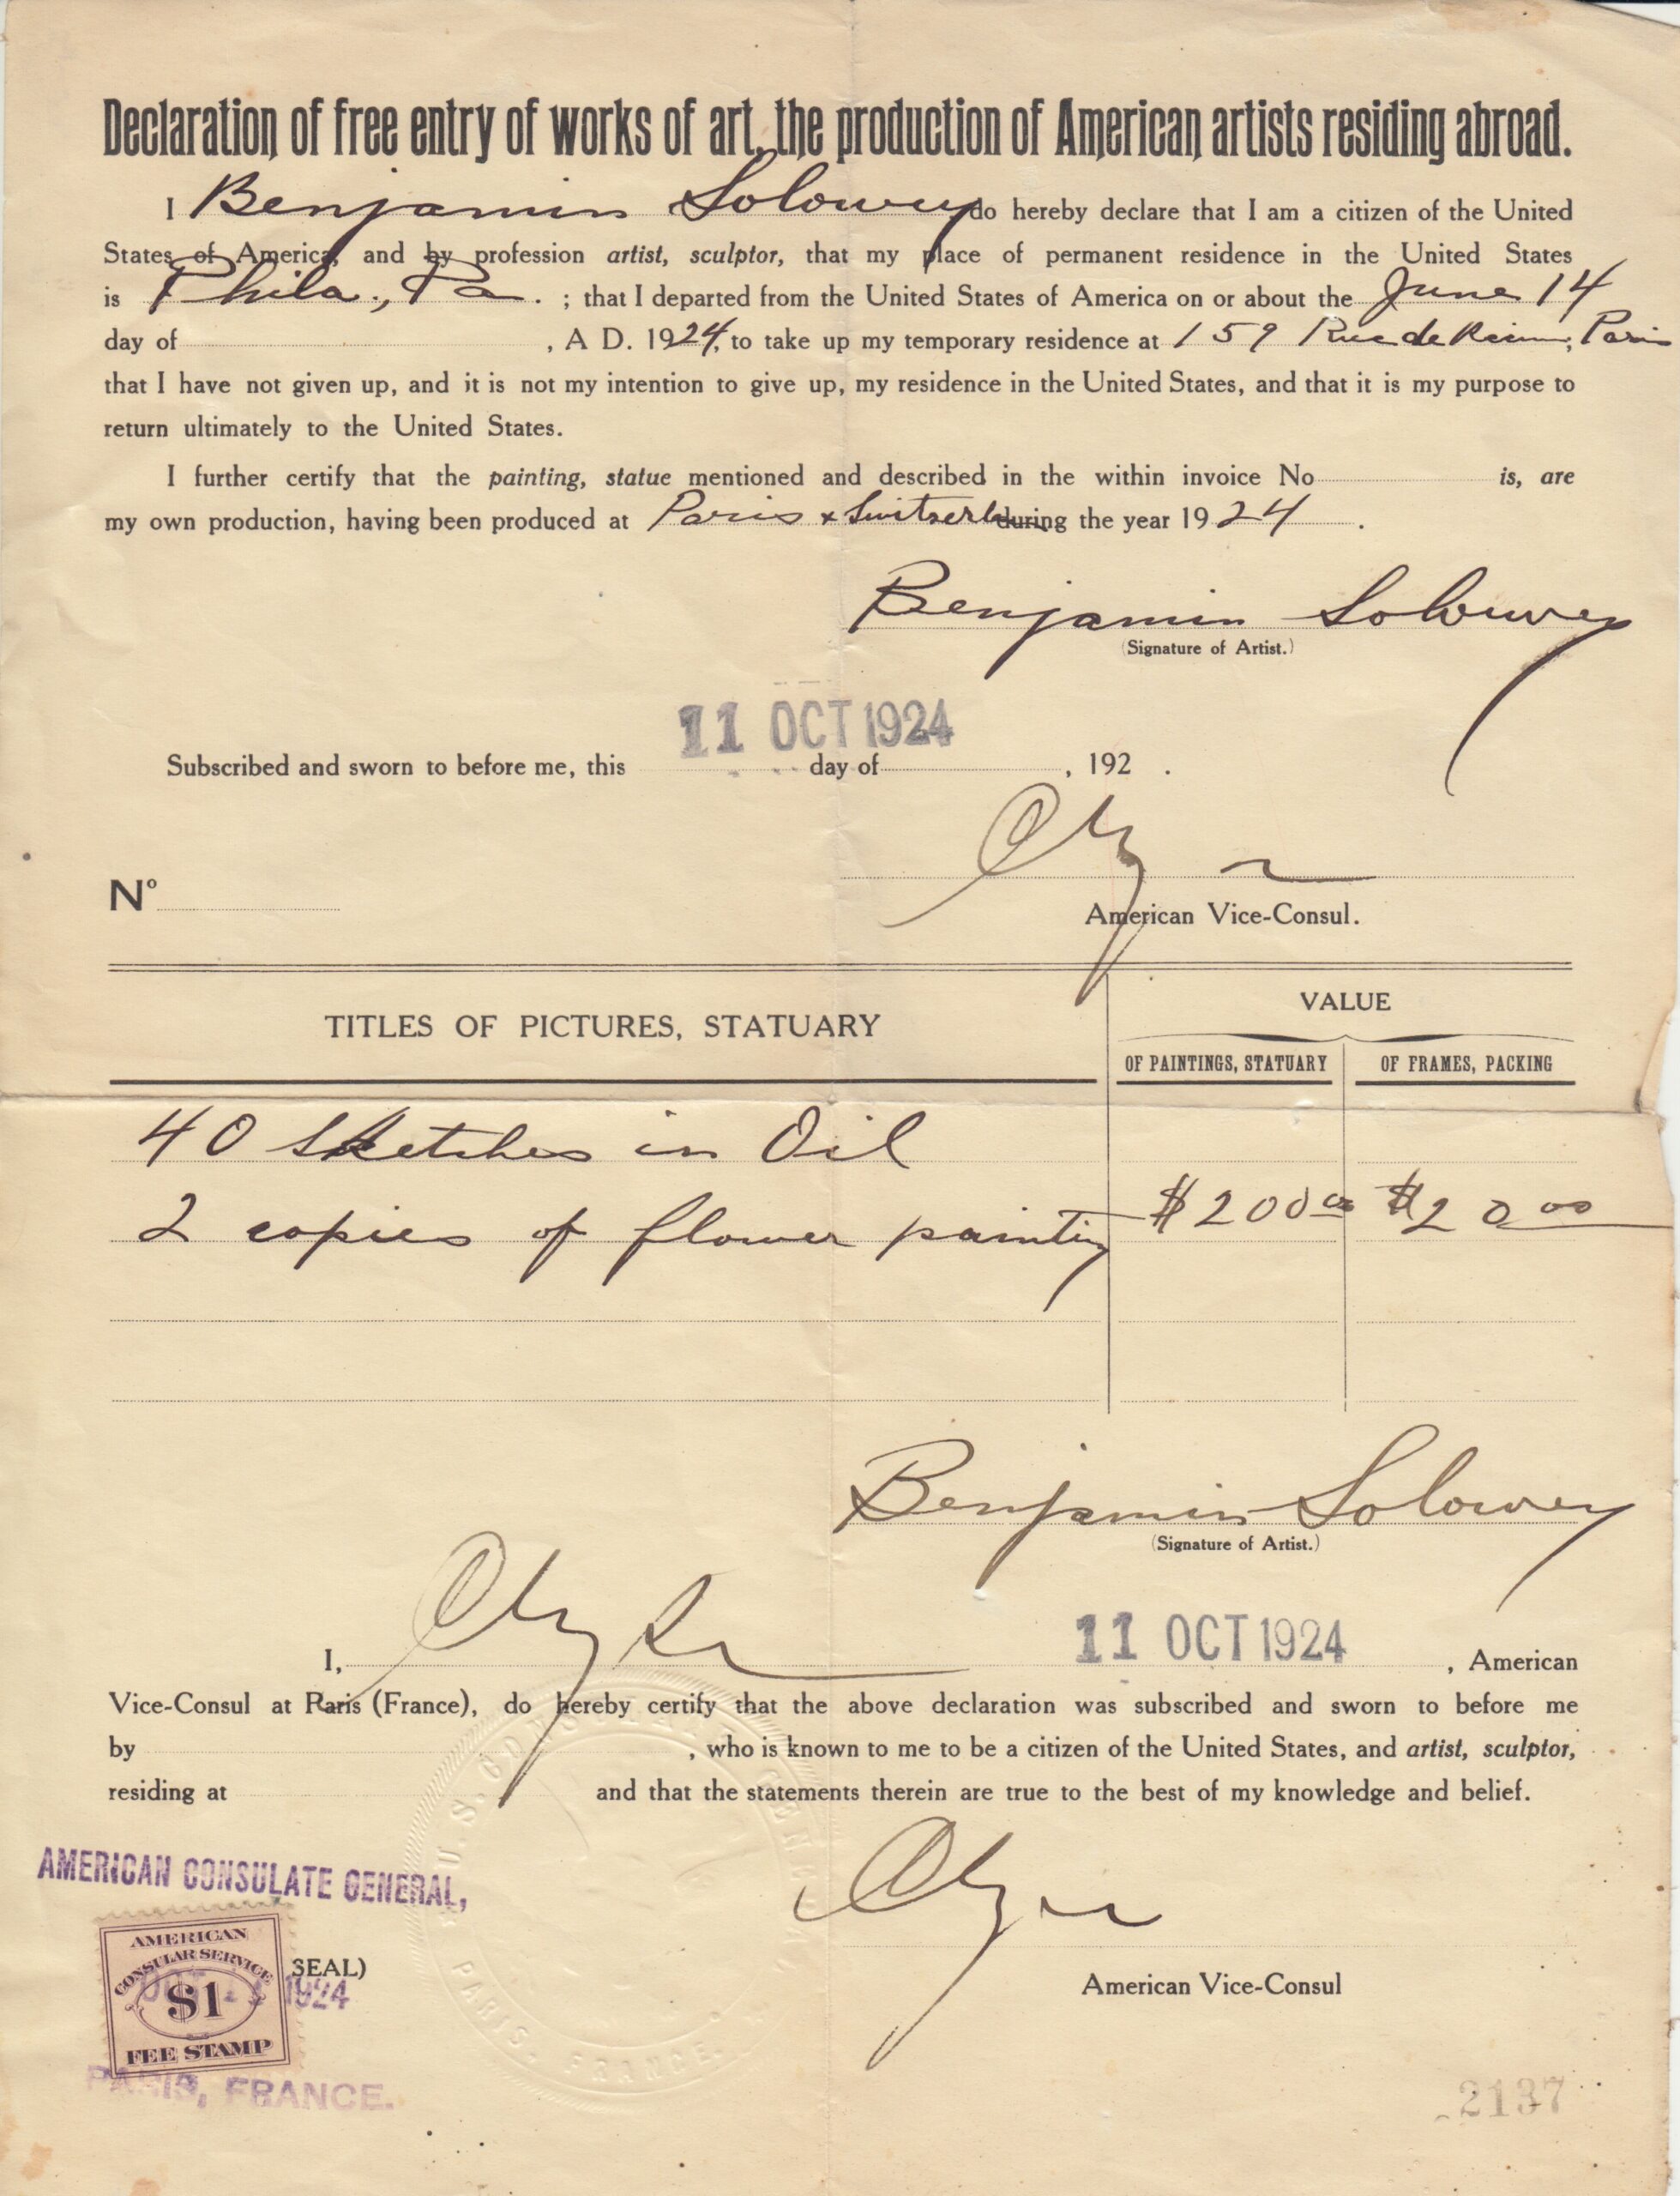 Declaration of free entry of works of art, the production of American artists residing abroad.
I Benjamin Solowey do hereby declare that I am a citizen of the United
States of America, and by profession artist, sculptor, that my place of permanent residence in the United States
is Phila., Pa. ; that I departed from the United States of America on or about the June 14
day of , A D. 1924, to take up my temporary residence at 159 Rue de , Paris
that I have not given up, and it is not my intention to give up, my residence in the United States, and that it is my purpose to
return ultimately to the United States.
I further certify that the painting, statue mentioned and described in the within invoice No is, are
my own production, having been produced at Paris & during the year 1924 .
Benjamin Solowey
(Signature of Artist.)
11 OCT 1924
Subscribed and sworn to before me, this day of , 192 .
No
American Vice-Consul.
TITLES OF PICTURES, STATUARY
VALUE
OF PAINTINGS, STATUARY
OF FRAMES, PACKING
40 Sketches in Oil
2 copies of flower painting $200 00 $20 00
Benjamin Solowey
(Signature of Artist.)
I, 11 OCT 1924 , American
Vice-Consul at Paris (France), do hereby certify that the above declaration was subscribed and sworn to before me
by , who is known to me to be a citizen of the United States, and artist, sculptor,
residing at and that the statements therein are true to the best of my knowledge and belief.
AMERICAN CONSULATE GENERAL,
AMERICAN
CONSULAR SERVICE
$1
FEE STAMP
SEAL)
OCT 1924
PARIS, FRANCE.
U.S. CONSULATE GENERAL
PARIS, FRANCE.
American Vice-Consul
2137